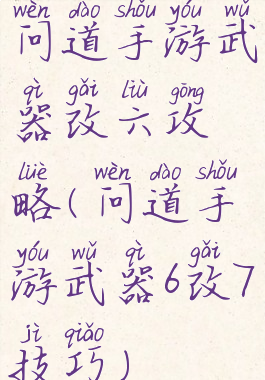 wèn dào shǒu yóu wǔ
问道手游武
qì gǎi liù gōng
器改六攻
lüè wèn dào shǒu
略(问道手
yóu wǔ qì gǎi
游武器6改7
jì qiǎo
技巧)